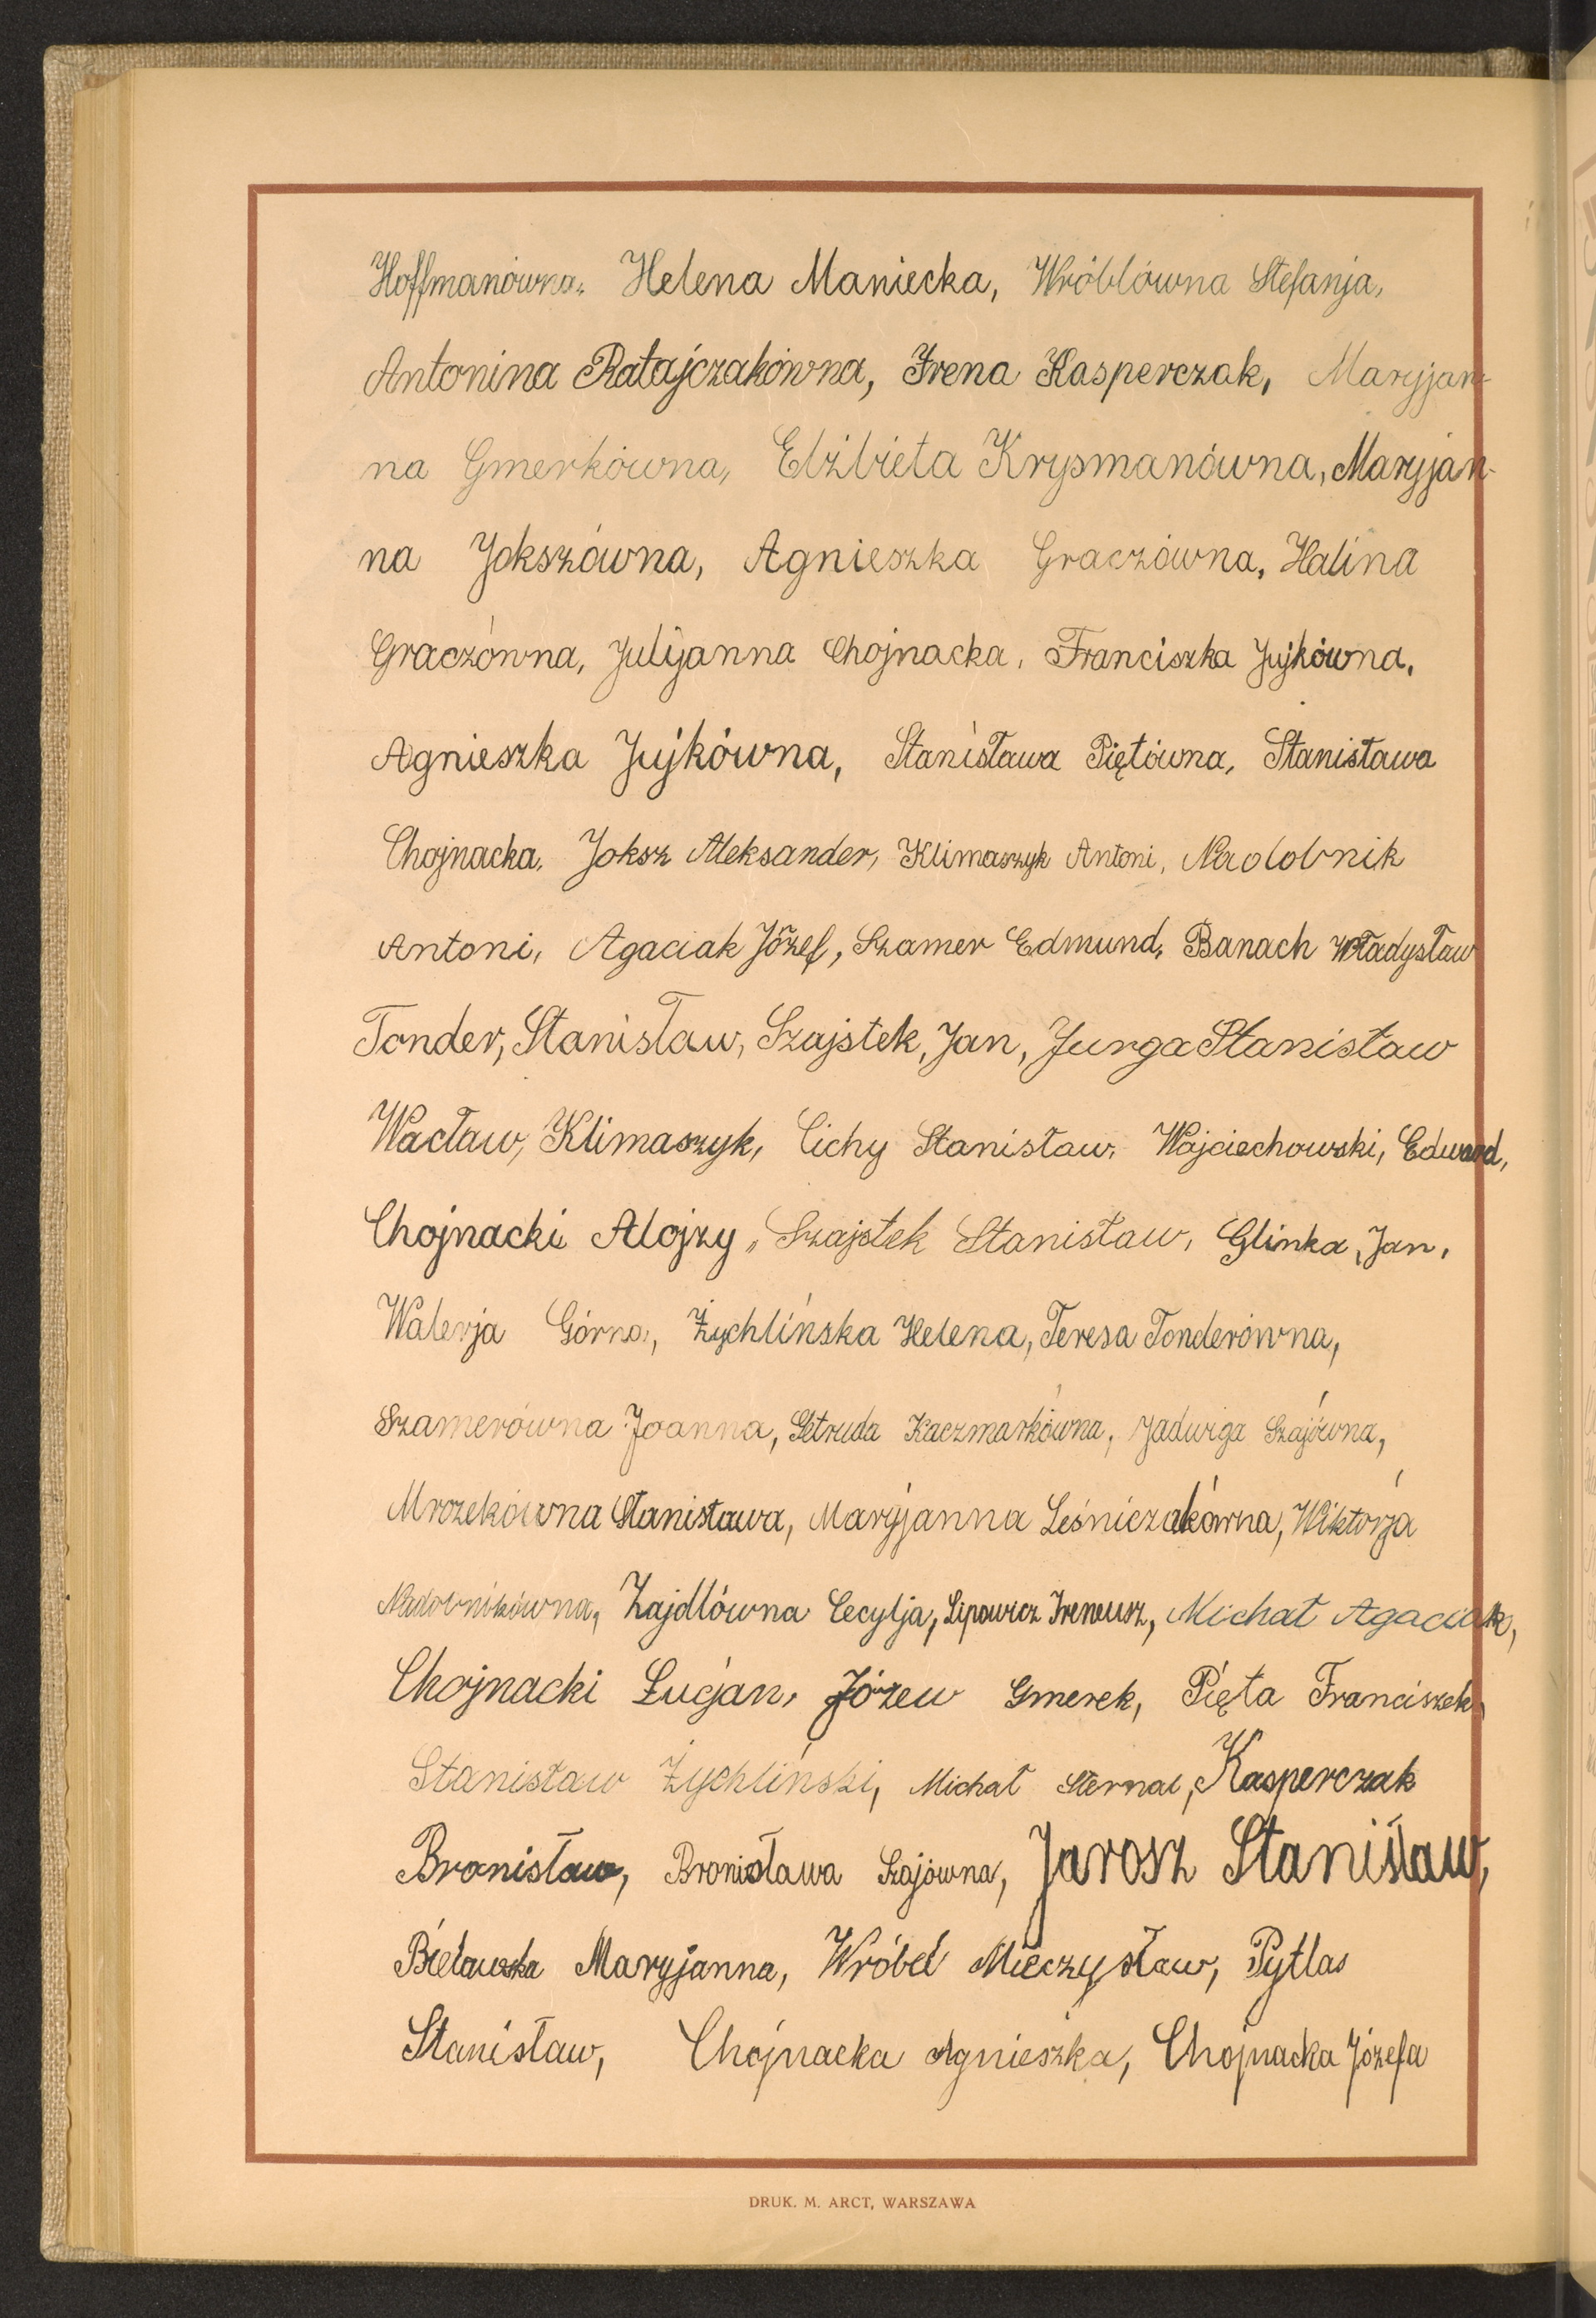 Hoffmanówna, Helena Maniecka, Wróblówna Stefanja,
Antonina Ratajczakówna, Irena Kasperczak, Maryjan-
na Gmerkówna, Elżbieta Krysmanówna, Maryjan-
na Jokszówna, Agnieszka Graczówna, Halina
Graczówna, Julijanna Chojnacka, Franciszka Jujkówna,
Agnieszka Jujkówna, Stanisława Piętówna, Stanisława
Chojnacka, Joksz Aleksander, Klimaszyk Antoni, Nadobnik
Antoni, Agaciak Józef, Szamer Edmund, Banach Władysław
Tonder, Stanisław, Szajstek, Jan, Jurga Stanisław
Wacław, Klimaszyk, Cichy Stanisław, Wojciechowski, Edward,
Chojnacki Alojzy, Szajstek Stanisław, Glinka, Jan,
Walerja Górna, Żychlińska Helena, Teresa Tonderówna,
Szamerówna Joanna, Getruda Kaczmarkówna, Jadwiga Szajówna,
Mrozekówna Stanisława, Maryjanna Leśniczakówna, Wiktorja
Nadobnikówna, Zajdlówna Cecylja, Lipowicz Ireneusz, Michał Agaciak,
Chojnacki Łucjan, Józew Gmerek, Pięta Franciszek,
Stanisław Żychliński, Michał Sternal, Kasperczak
Bronisław, Bronisława Szajówna, Jarosz Stanisław,
Bielawska Maryjanna, Wróbel Mieczysław, Pytlas
Stanisław, Chojnacka Agnieszka, Chojnacka Józefa
DRUK. M. ARCT, WARSZAWA